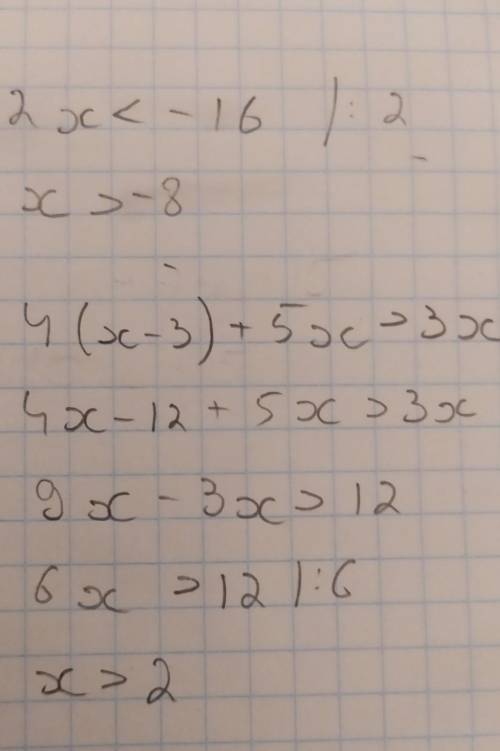 2x < -16 |: 2
x > -8
4(x-3) + 5x > 3x
4x - 12 + 5x > 3x
9x - 3x > 12
6x > 12 |:6
x > 2